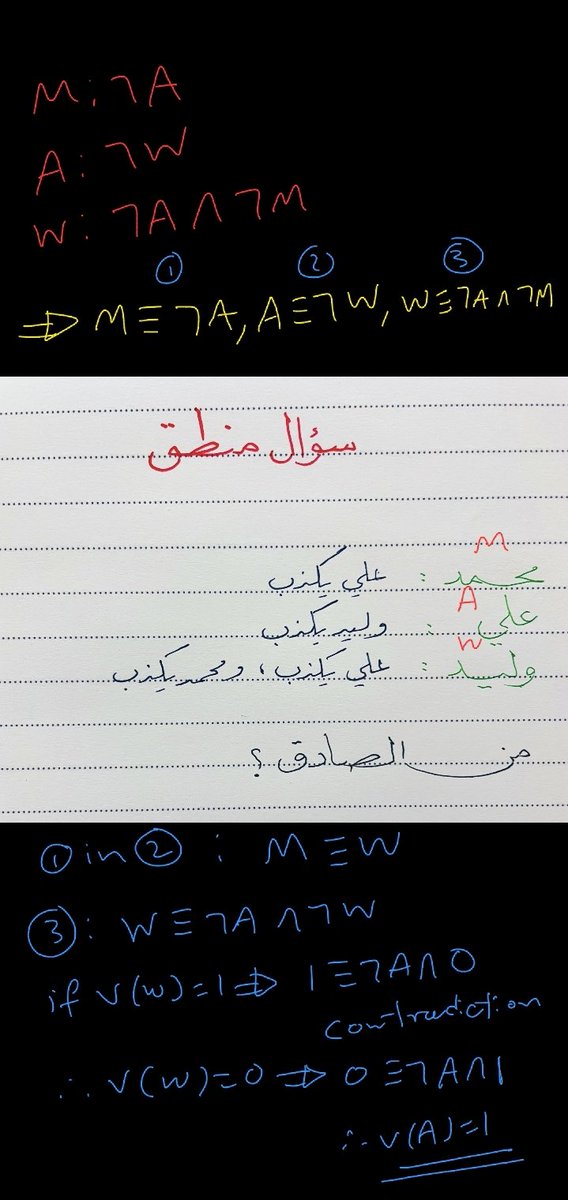 M: ¬A
A: ¬W
W: ¬A ∧ ¬M
① ② ③
⇒ M ≡ ¬A, A ≡ ¬W, W ≡ ¬A ∧ ¬M
سؤال منطق
M
محمد : علي يكذب
A
علي : وليد يكذب
W
وليد : علي يكذب، ومحمد يكذب
من الصادق؟
① in ② : M ≡ W
③ : W ≡ ¬A ∧ ¬W
if v(w)=1 ⇒ 1 ≡ ¬A ∧ 0
contradiction
∴ v(W)=0 ⇒ 0 ≡ ¬A ∧ 1
∴ v(A)=1